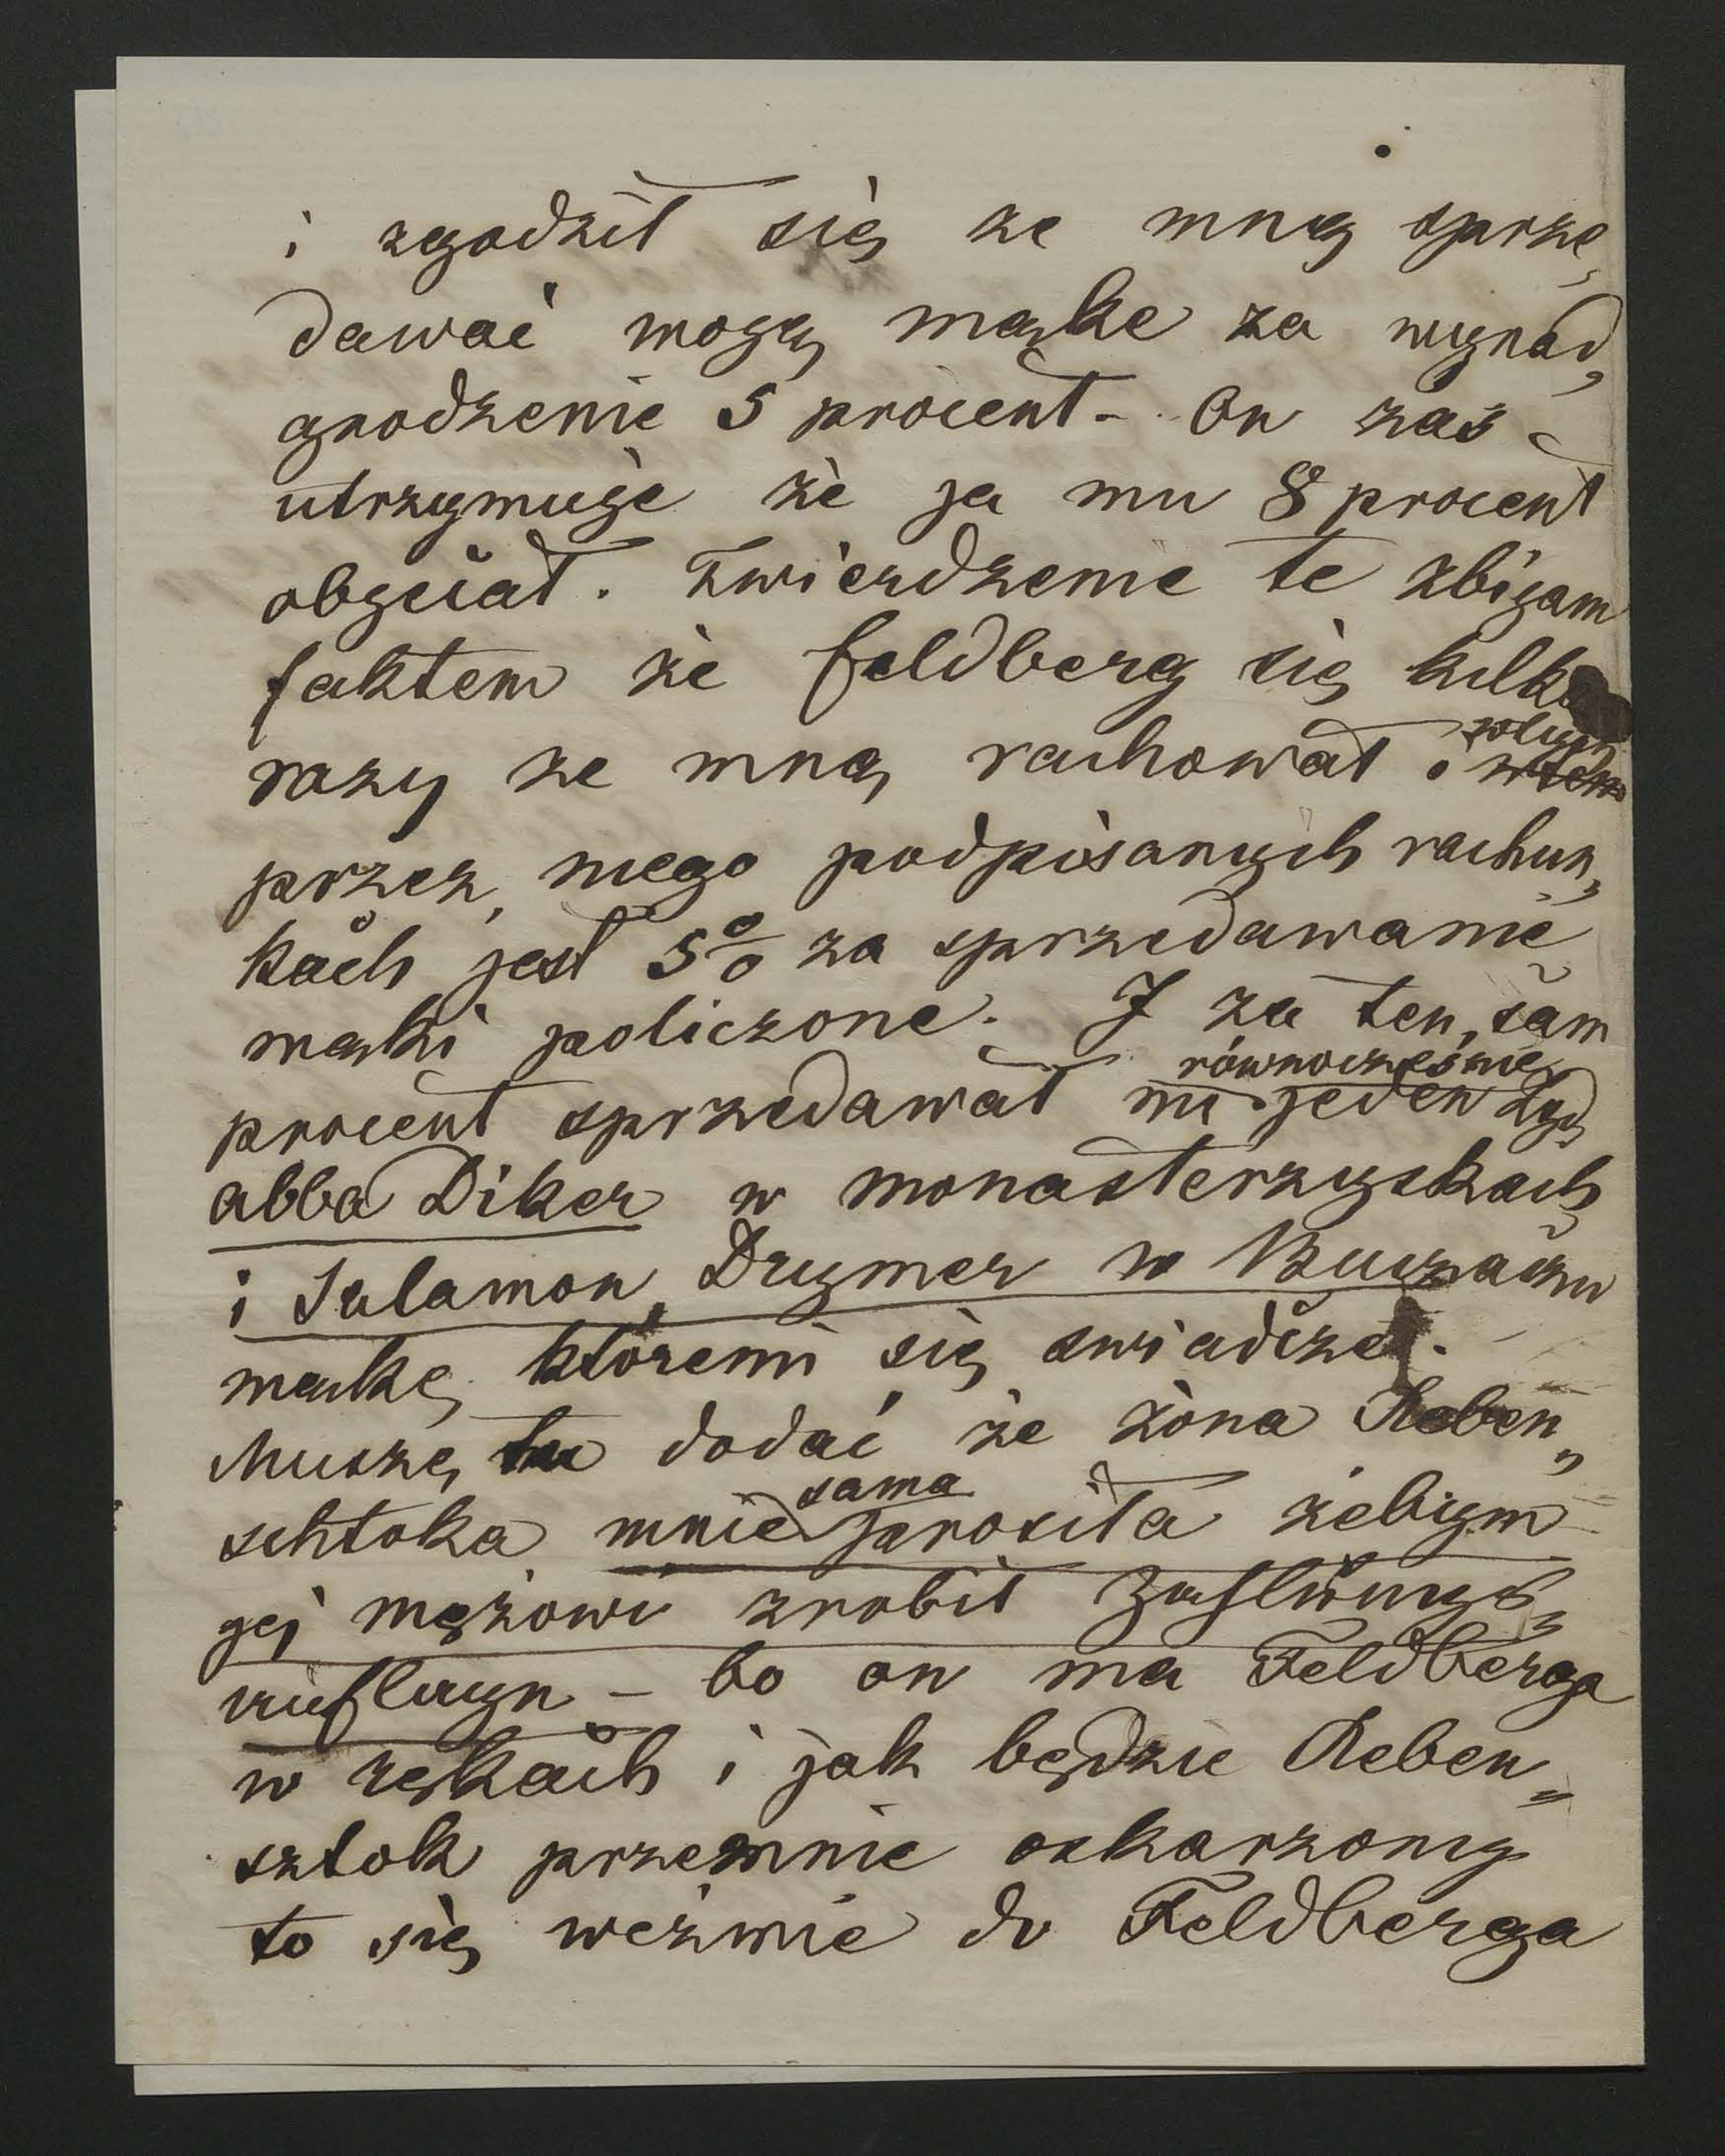 i zgodził się ze mną sprze„
dawać mogą mąke za wynad„
grodzenie 5 procent - On zaś
utrzymuje że ja mu 8 procent
obyciał. Twierdzenie te zbijam
faktem że Feldberg się kilka
razy ze mną rachował i w tych
przez niego podpisanych rachun„
kach jest 5% za sprzedawanie
mąki policzone. I za ten sam
procent sprzedawał mi równocześnie jeden Żyd
abba Diker w monasterzyskach
i Salamon Drymer w Buczaczu
mąkę któremi się swiadczę.
Muszę tu dodać że żona Reben„
schtoka mnie sama prosiła żebym
jej mężowi zrobił
bo on ma Feldberga
w rękach i jak będzie Reben„
sztok przezemnie oskarzony
to się weźmie do Feldberga